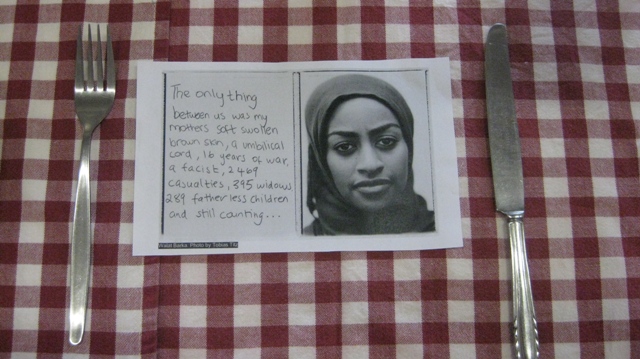 The only thing
between us was my
mothers soft swollen
brown skin, a umbilical
cord, 16 years of war,
a facist, 2469
casualties, 395 widows,
289 fatherless children
and still counting...
Photo by Tobias Titz